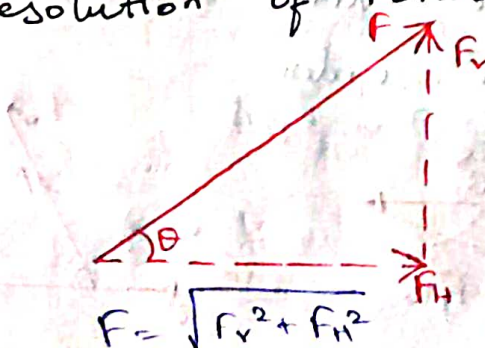 esolution of
F
Fv
θ
FH
F = √Fv² + FH²